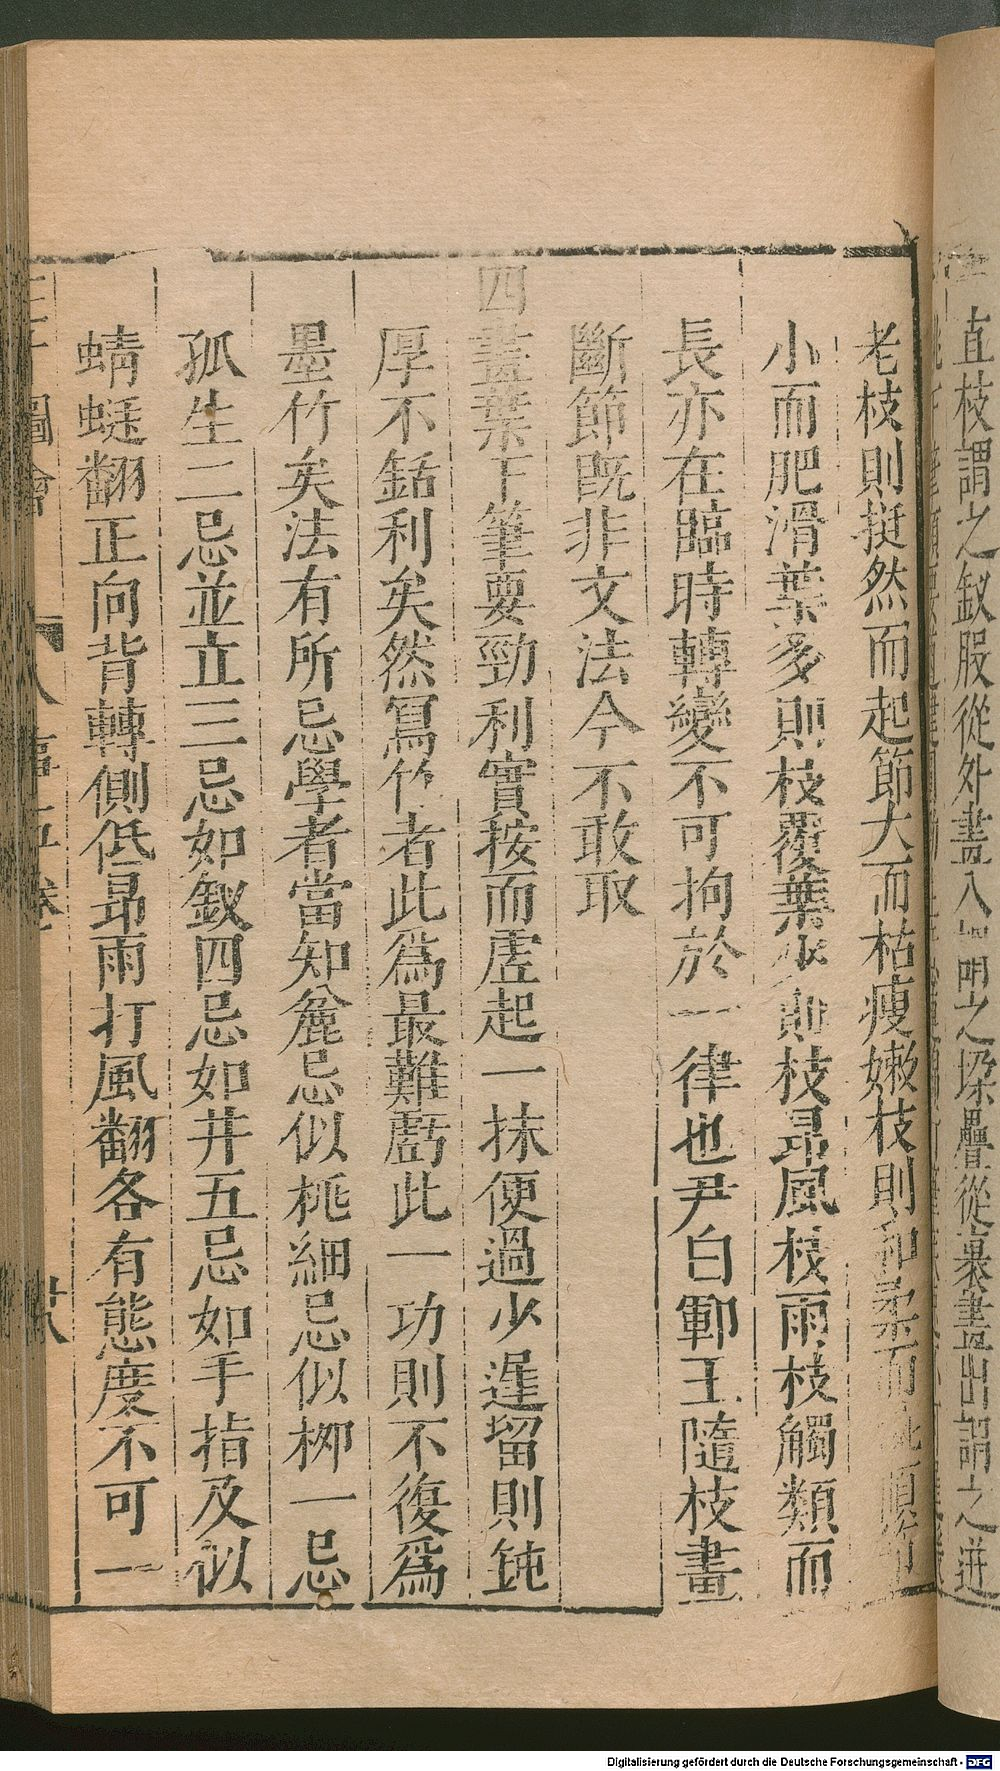 直枝謂之釵股從外畫入謂之垜疊從裏畫出謂之迸
老枝則挺然而起節大而枯瘦嫩枝則和柔而婉順節
小而肥滑葉多則枝覆葉少則枝昂風枝雨枝觸類而
長亦在臨時轉變不可拘於一律也尹白鄆王隨枝畫
斷節既非文法今不敢取
四畫葉下筆要勁利實按而虛起一抹便過少遲留則鈍
厚不銛利矣然寫竹者此為最難虧此一功則不復為
墨竹矣法有所忌學者當知麄忌似桃細忌似柳一忌
孤生二忌並立三忌如釵四忌如井五忌如手指及似
蜻蜓翻正向背轉側低昂雨打風翻各有態度不可一
圖會 人事五卷
Digitalisierung gefördert durch die Deutsche Forschungsgemeinschaft - DFG